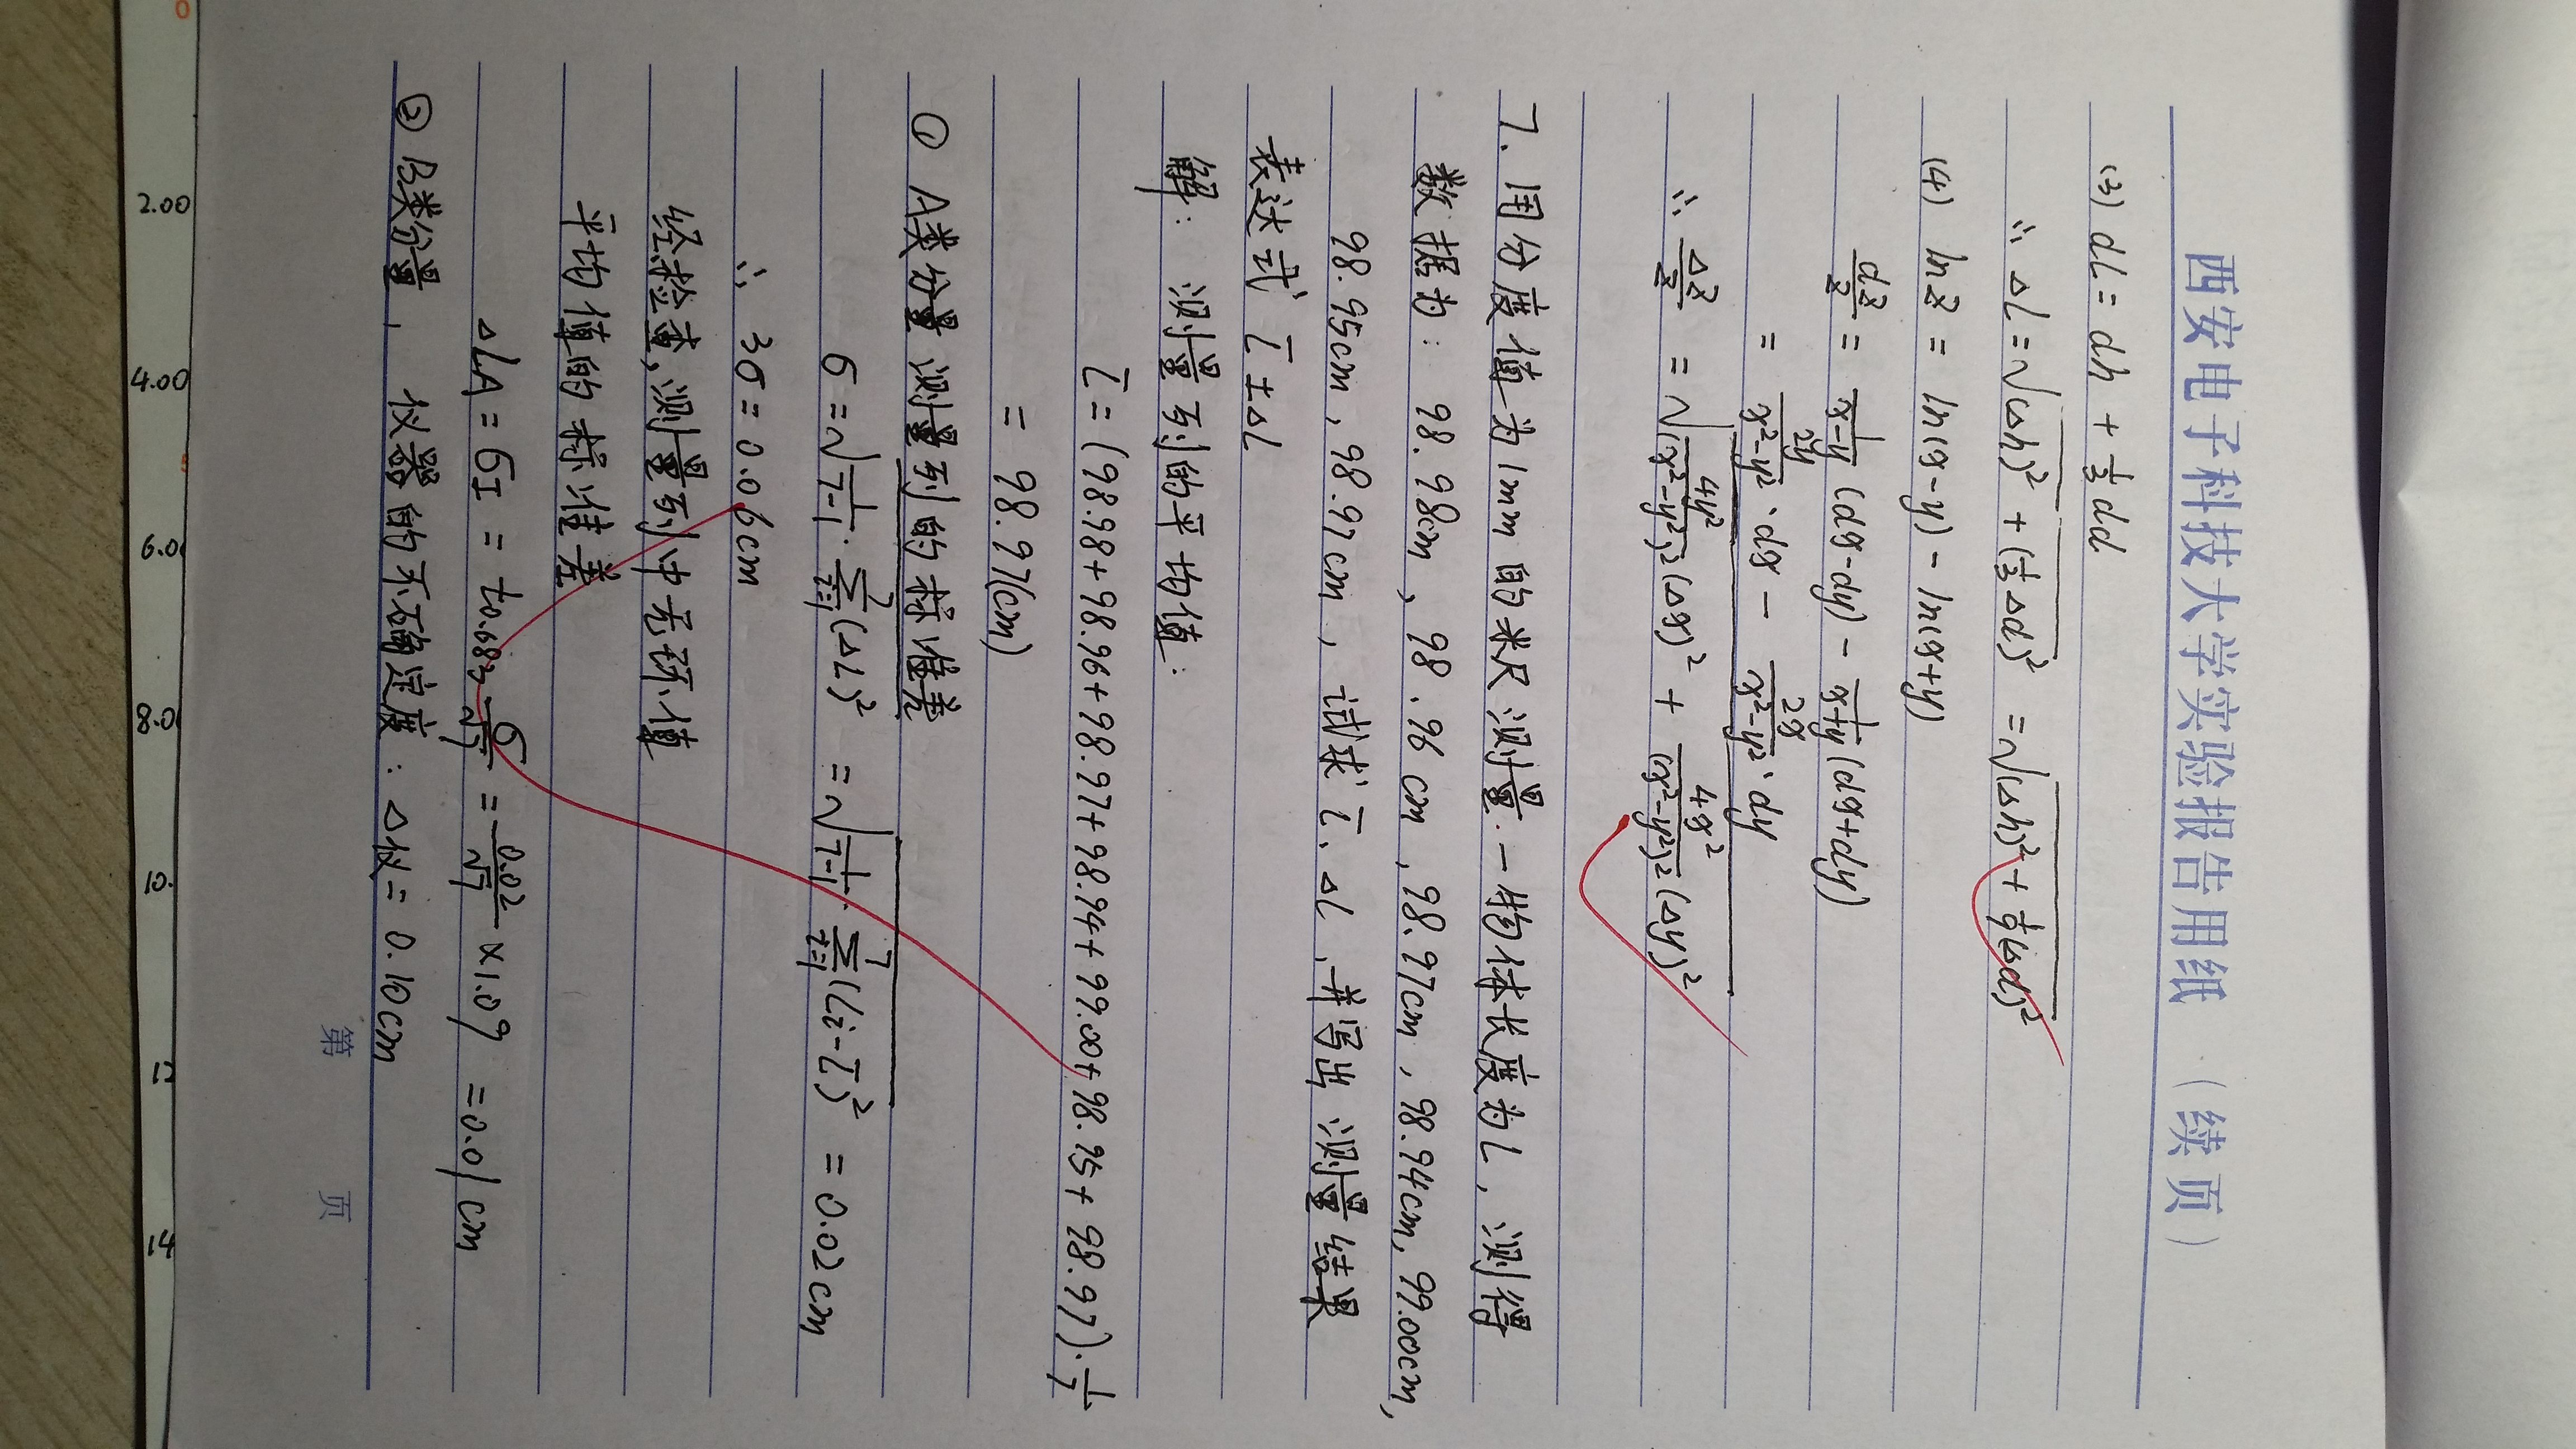 西安电子科技大学实验报告用纸（续页）
(3) dL = dh + 1/3 dd
∴ ΔL = √((Δh)² + (1/3 Δd)²) = √((Δh)² + 1/9 (Δd)²)
(4) ln z = ln(x-y) - ln(x+y)
dz/z = 1/(x-y) (dx-dy) - 1/(x+y) (dx+dy)
= 2y/(x²-y²) · dx - 2x/(x²-y²) · dy
∴ Δz/z = √(4y²/(x²-y²)² (Δx)² + 4x²/(x²-y²)² (Δy)²)
7. 用分度值为1mm的米尺测量一物体长度为L，测得
数据为：98.98cm，98.96cm，98.97cm，98.94cm，99.00cm，
98.95cm，98.97cm，试求L̄、ΔL，并写出测量结果
表达式 L̄±ΔL
解：测量列的平均值：
L̄ = (98.98+98.96+98.97+98.94+99.00+98.95+98.97)·1/7
= 98.97(cm)
① A类分量 测量列的标准差
σ = √(1/(7-1) · Σ(i=1→7) (ΔL)²) = √(1/(7-1) · Σ(i=1→7) (Li-L̄)²) = 0.02cm
∴ 3σ = 0.06cm
经检查，测量列中无坏值
平均值的标准差
ΔLA = σL̄ = t0.683 σ/√7 = 0.02/√7 ×1.09 = 0.01cm
② B类分量，仪器的不确定度：Δ仪 = 0.10cm
第 页
0
2.00
4.00
6.0
8.0
10.
12
14